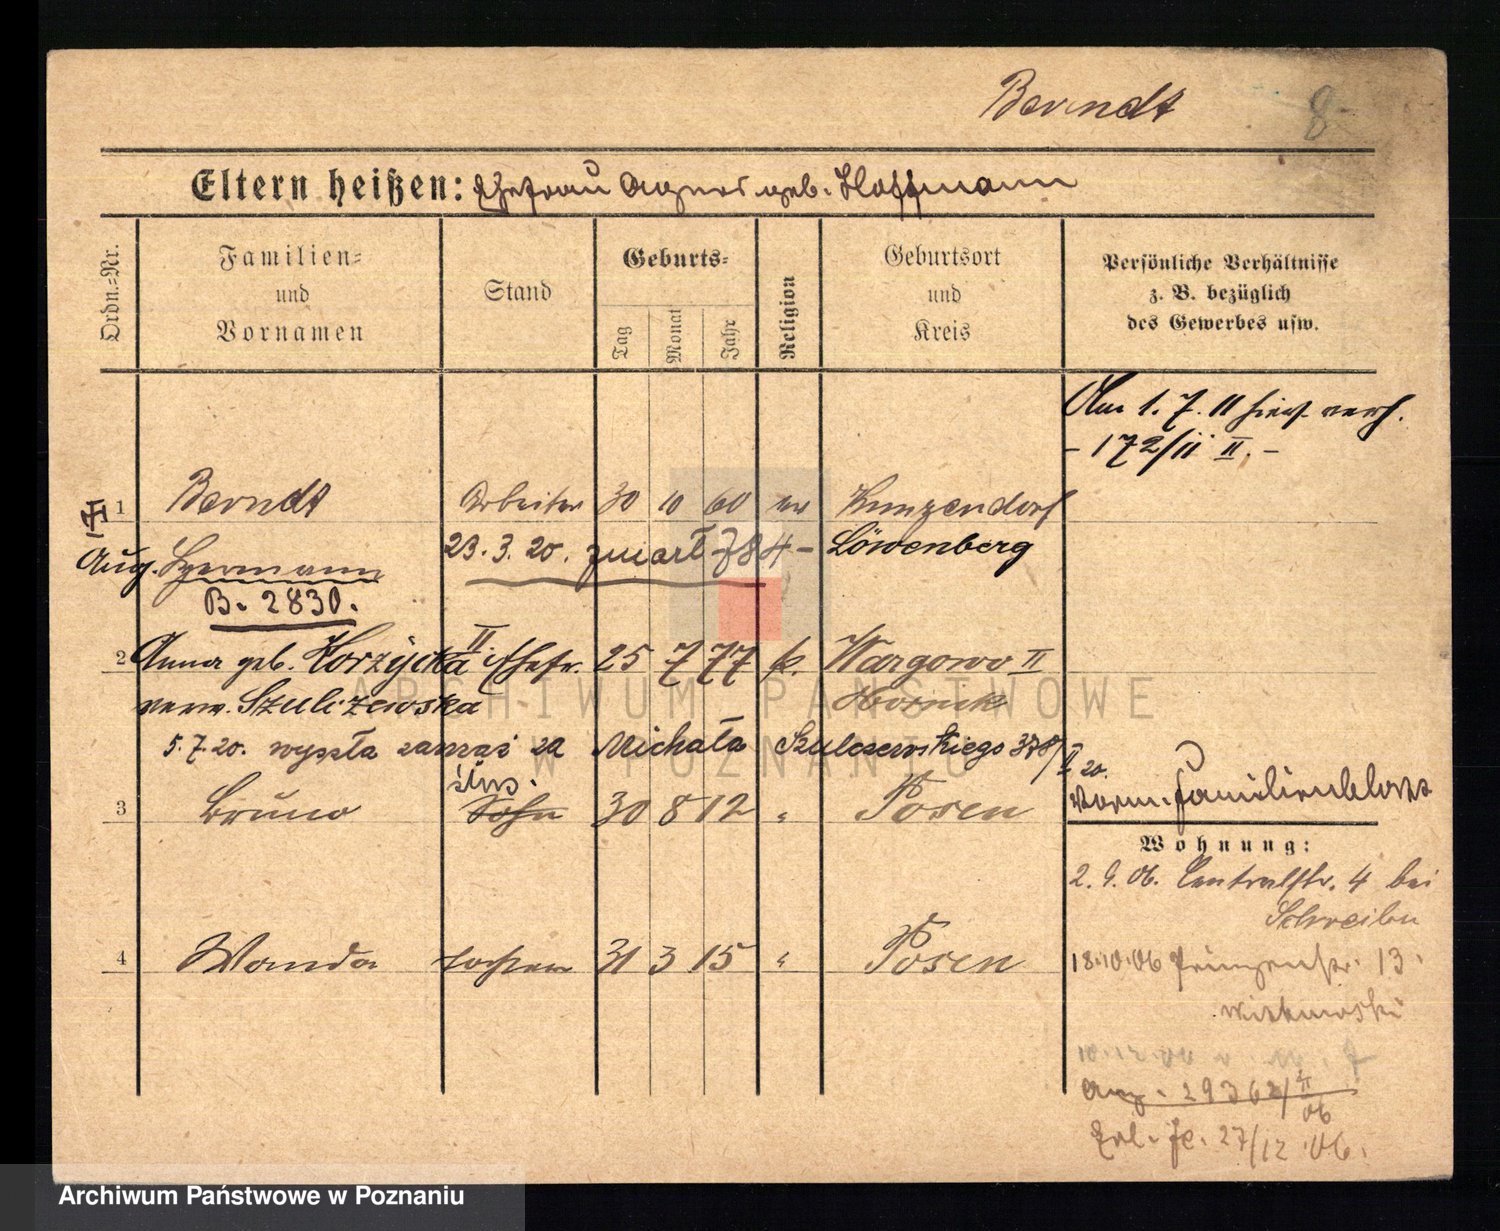 Berndt
8
Eltern heißen: Ehefrau Agnes geb. Hoffmann
Ordn.-Nr.
Familien-
und
Vornamen
Stand
Geburts-
Tag
Monat
Jahr
Religion
Geburtsort
und
Kreis
Persönliche Verhältnisse
z. B. bezüglich
des Gewerbes usw.
Am 1. 7. 11 verh.
- 172/11 II. -
1 Berndt Arbeiter 30 10 60 ev Kunzendorf
Aug. Hermann 23. 3. 20. zmarł 784 - Löwenberg
B. 2830.
2 Anna geb. Korzycka II Ehefr. 25 7 77 k. Wargowo II
verw. Szulczewska Obornik
5.7.20. wyszła zamąż za Michała Szulczewskiego 378/I 20.
Vorm. Familienblatt
3 Bruno Sohn 30 8 12 " Posen
Wohnung:
2. 9. 06. Centralstr. 4 bei
Schreiber
4 Wanda Tochter 31 3 15 " Posen
18.10.06 Prinzenstr. 13.
29362/
06
27/12 06.
ARCHIWUM PAŃSTWOWE
W POZNANIU
Archiwum Państwowe w Poznaniu